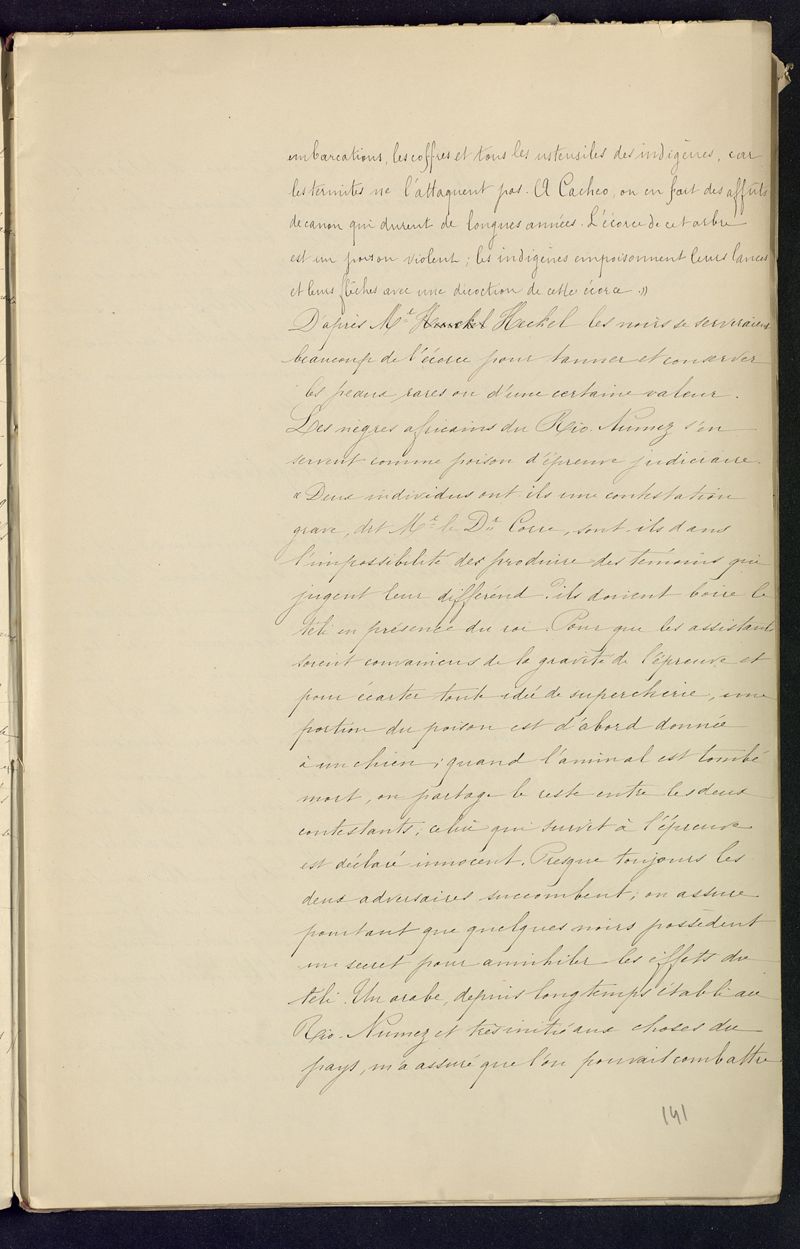 embarcations, les coffres et tous les ustensiles des indigènes, car
les termites ne l'attaquent pas. A Cacheo, on en fait des affuts
de canon qui durent de longues années. L'écorce de cet arbre
est un poison violent ; les indigènes empoisonnent leurs lances
et leurs flèches avec une décoction de cette écorce »
D'après Mr Heckel les noirs se serviraient
beaucoup de l'écorce pour tanner et conserver
les peaux rares ou d'une certaine valeur.
Les nègres africains du Rio-Nunez s'en
servent comme poison d'épreuve judiciaire.
« Deux individus ont ils une contestation
grave, dit Mr le Dr Corre, sont ils dans
l'impossibilité de produire des témoins qui
jugent leur différend ? ils doivent boire le
téli en présence du roi. Pour que les assistants
soient convaincus de la gravité de l'épreuve et
pour écarter toute idée de supercherie, une
portion du poison est d'abord donnée
à un chien ; quand l'aminal est tombé
mort, on partage le reste entre les deux
contestants ; celui qui survit à l'épreuve
est déclaré innocent. Presque toujours les
deux adversaires succombent ; on assure
pourtant que quelques noirs possèdent
un secret pour annihiler les effets du
téli. Un arabe, depuis longtemps établi au
Rio-Nunez et très initié aux choses du
pays, m'a assuré que l'on pouvait combattre
141